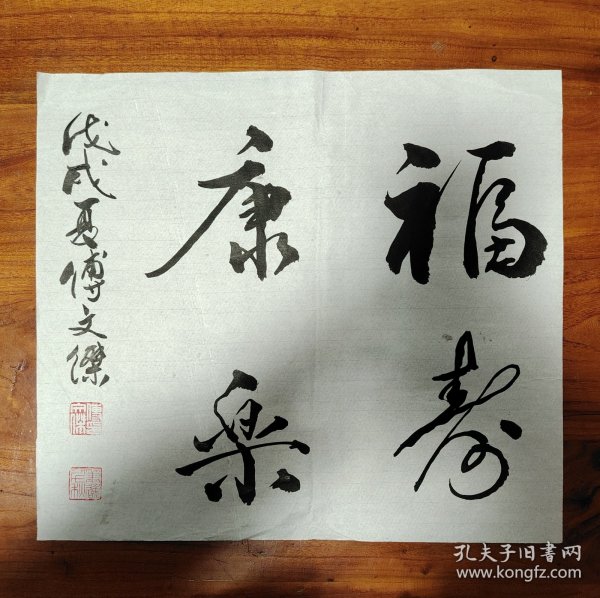 福寿
康楽
戊戌夏傅文傑
孔夫子旧書网
www.kongfz.com